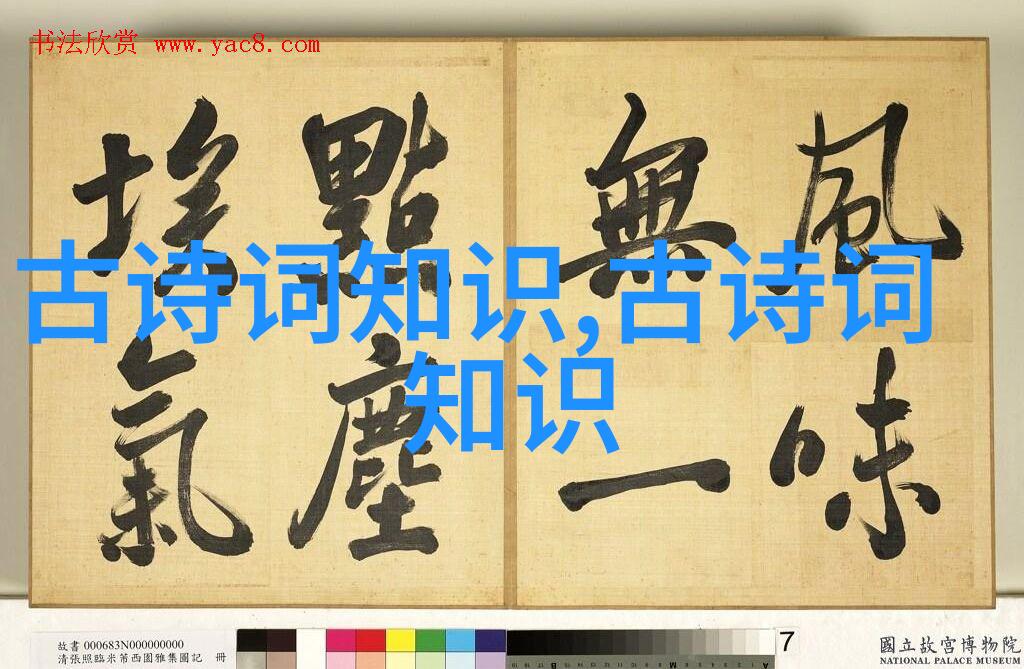 书法欣赏 www.yac8.com
風味
無一
點塵
埃氣
古诗词知识,古诗词
知识
故書 000683N000000000
清張照臨米芾西園雅集圖記 冊
7
國立故宮博物院
NATIONAL PALACE MUSEUM